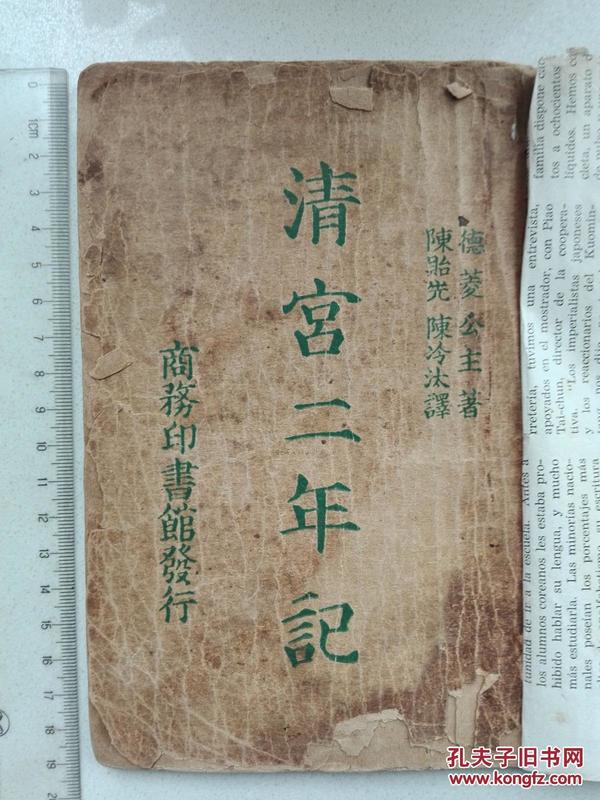 德菱公主著
陳貽先 陳冷汰譯
清宮二年記
商務印書館發行
familia dispone
tos a ochocientos
líquidos. Hemos
cleta, un aparato
rretería, tuvimos una entrevista,
apoyados en el mostrador, con Piao
Tai-chun, director de la coopera-
tiva. "Los imperialistas japoneses
y los reaccionarios del Kuomin-
tunidad de ir a la escuela. Antes a
los alumnos coreanos les estaba pro-
hibido hablar su lengua, y mucho
más estudiarla. Las minorías nacio-
nales poseían los porcentajes más
0 1cm 2 3 4 5 6 7 8 9 10 11 12 13 14 15 16 17 18 19 20
孔夫子旧书网
www.kongfz.com